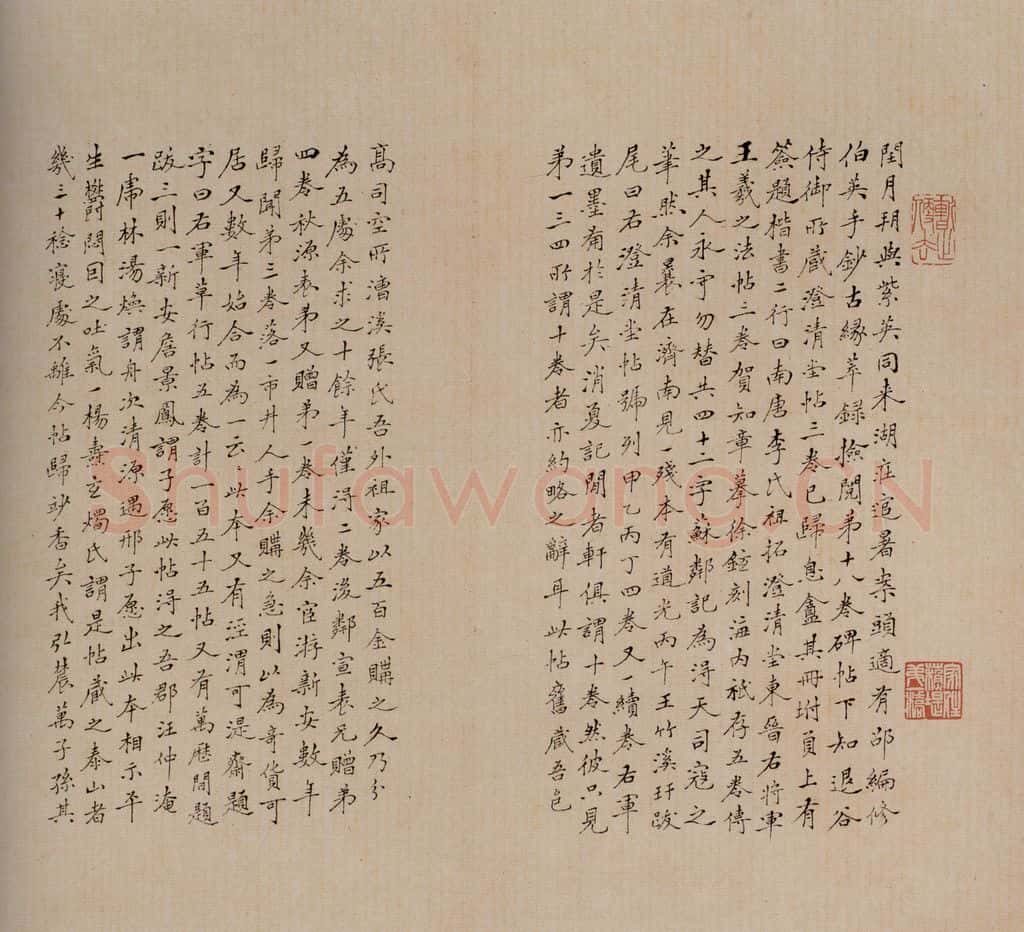 閏月玥與紫英同来湖庄逭暑案頭適有邵編修
伯英手鈔古緣萃録撿閱第十八卷碑帖下知退谷
侍御所藏澄清堂帖三卷已歸息盦其冊坿頁上有
簽題楷書二行曰南唐李氏祖拓澄清堂東晉右將軍
王羲之法帖三卷賀知章摹徐鉉刻海内祇存五卷傳
之其人永守勿替共四十二字蘇鄰記為淂天司寇之
筆然余曩在濟南見一殘本有道光丙午王竹溪玕跋
尾曰右澄清堂帖號列甲乙丙丁四卷又一續卷右軍
遺墨萹於是矣消夏記閒者軒俱謂十卷然彼只見
弟一三四所謂十卷者亦約略之辭耳此帖舊藏吾邑
髙司空所漕溪張氏吾外祖家以五百金購之久乃分
為五處余求之十餘年僅淂二卷後鄰宣表兄贈弟
四卷秋源表弟又贈弟一卷未幾余宦游新安數年
歸聞弟三卷落一市井人手余購之急則以為竒貨可
居又數年始合而為一云云此本又有涇渭可湜齋題
字曰右軍草行帖五卷計一百五十五帖又有萬歷間題
跋三則一新安詹景鳳謂子愿此帖淂之吾郡汪仲淹
一虎林湯煥謂舟次清源遇邢子愿出此本相示平
生欝悶因之吐氣一楊壽玄燭氏謂是帖藏之泰山者
幾三十稔寢處不離今帖歸竗香矣我弘農萬子孫其
Shufawang.CN